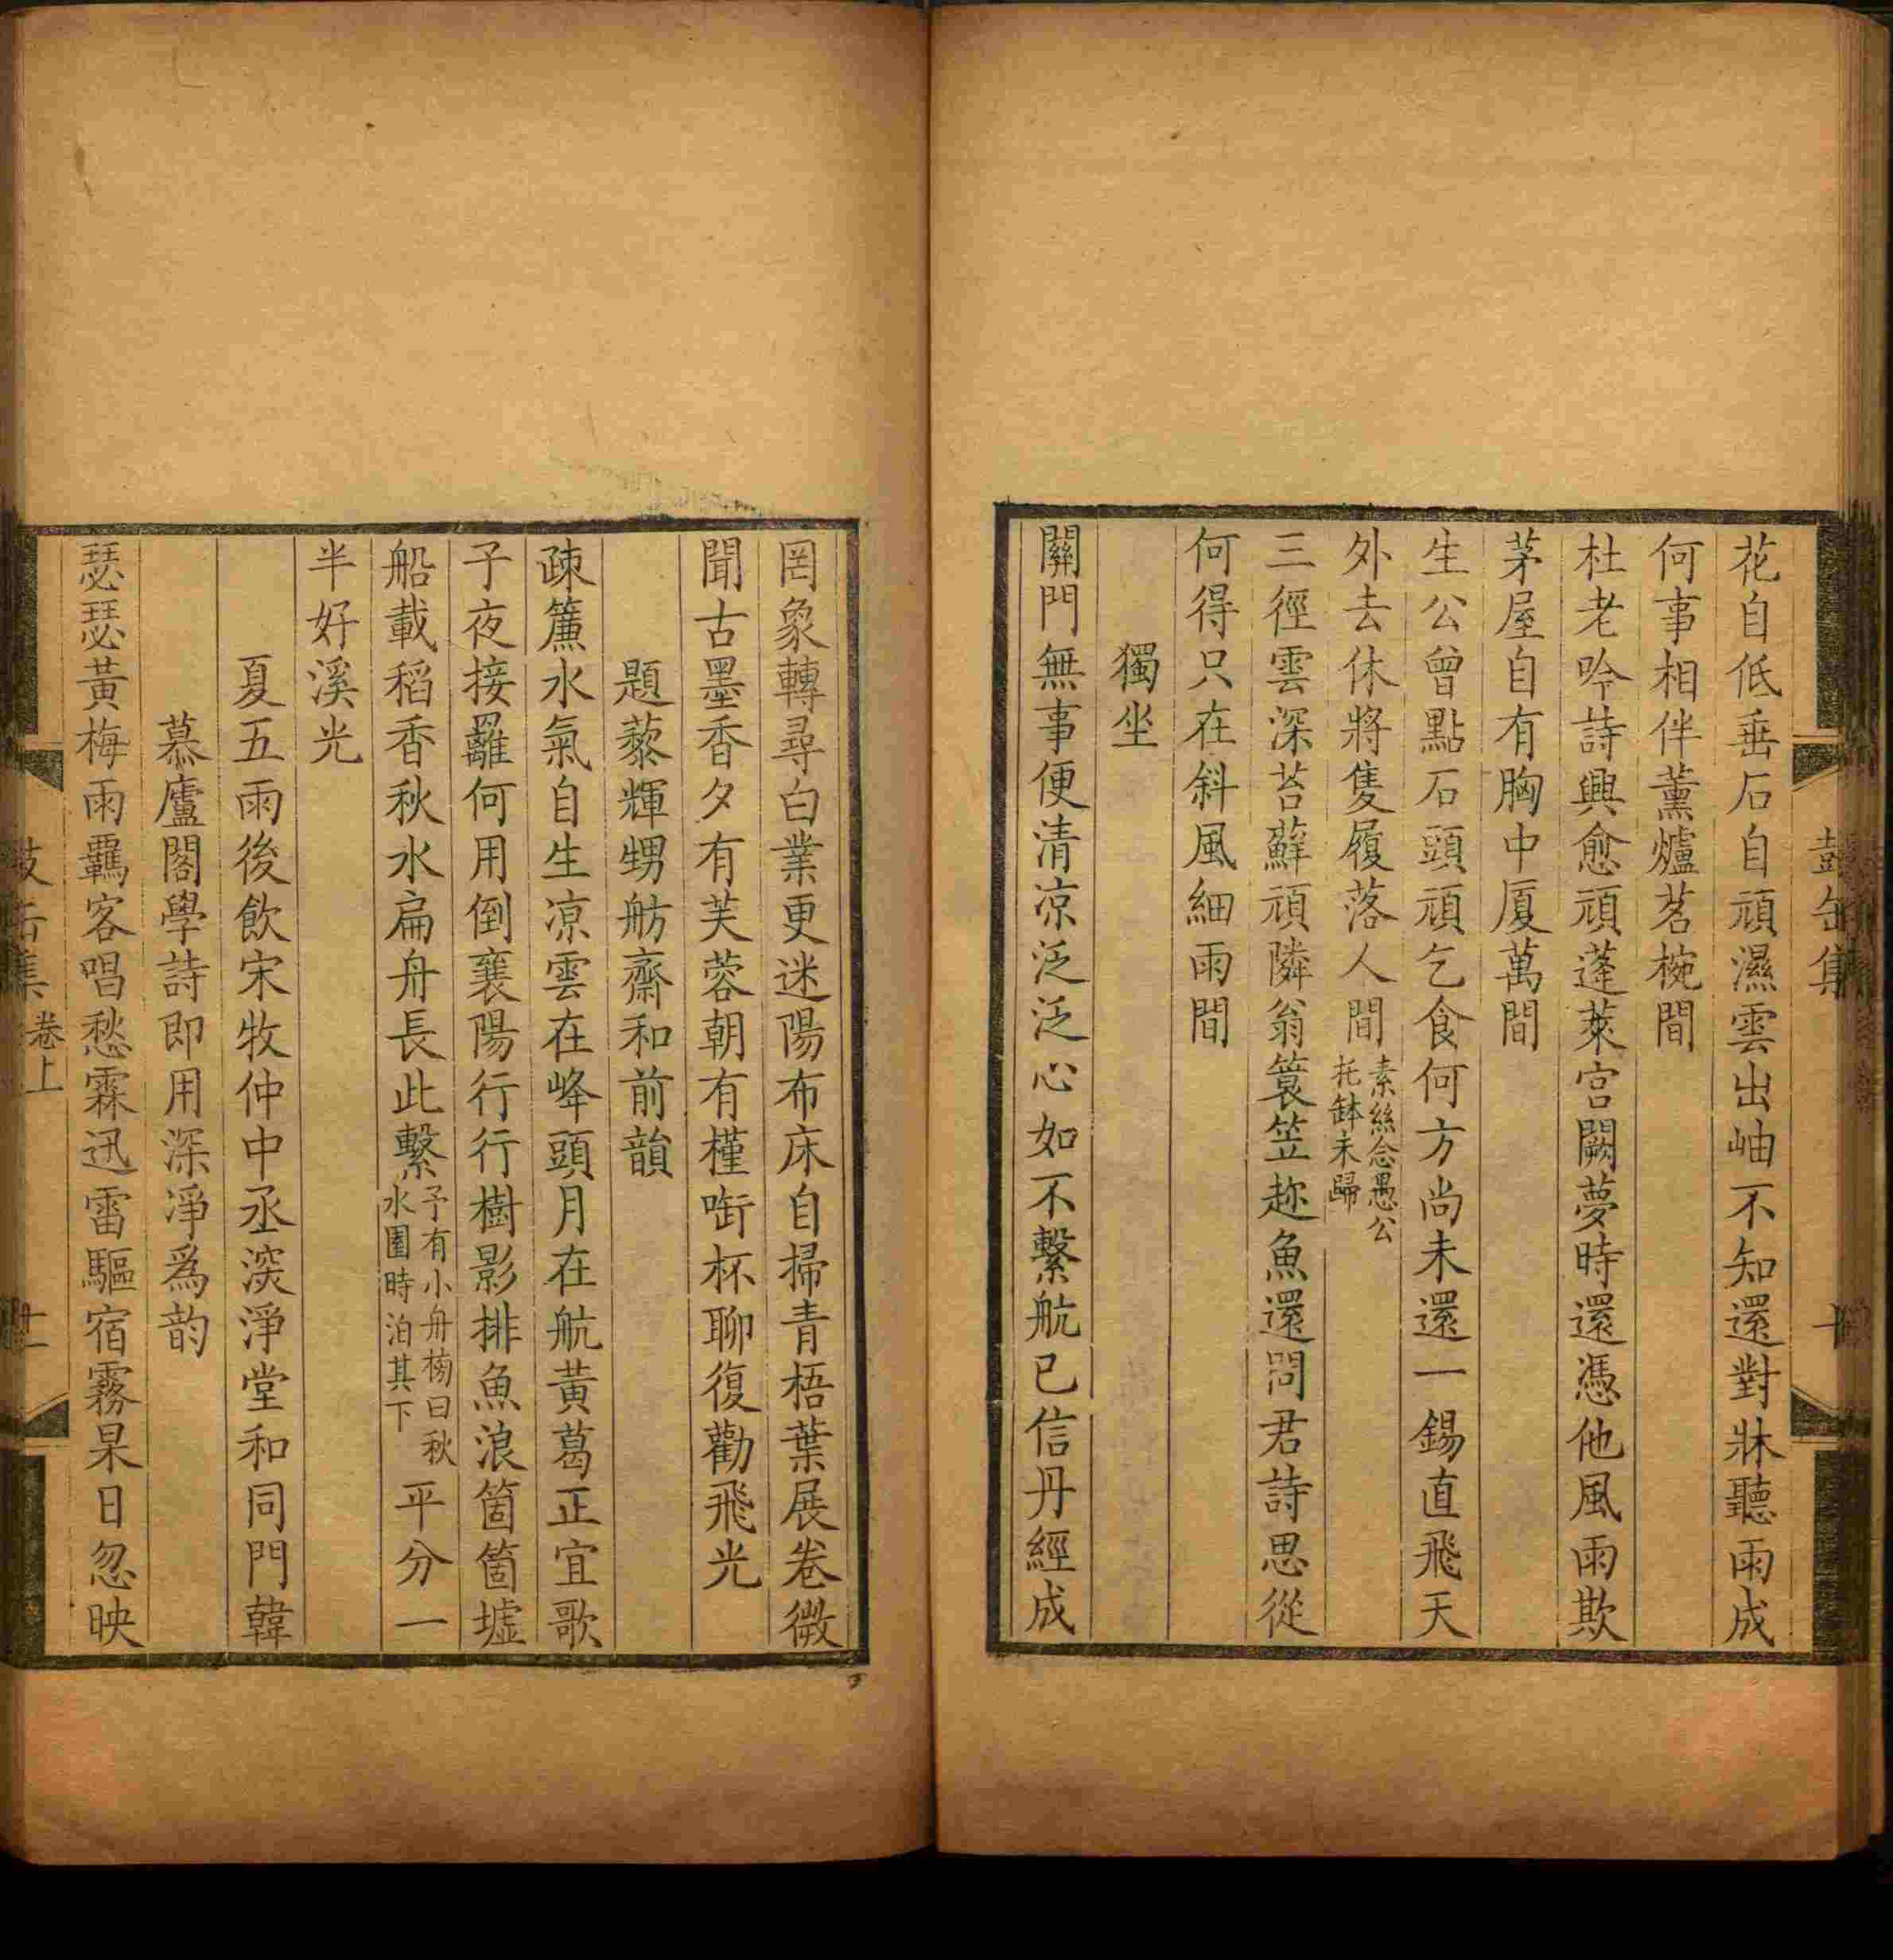 花自低垂石自頑濕雲出岫不知還對牀聽雨成
何事相伴薰爐茗椀間
杜老吟詩興愈頑蓬萊宮闕夢時還憑他風雨欺
茅屋自有胸中厦萬間
生公曾點石頭頑乞食何方尚未還一錫直飛天
外去休將隻履落人間素絲念愚公托缽未歸
三徑雲深苔蘚頑隣翁簑笠趂魚還問君詩思從
何得只在斜風細雨間
獨坐
關門無事便清凉泛泛心如不繫航已信丹經成
罔象轉尋白業更迷陽布床自掃青梧葉展卷微
聞古墨香夕有芙蓉朝有槿啣杯聊復勸飛光
題藜輝甥舫齋和前韻
疎簾水氣自生凉雲在峰頭月在航黃葛正宜歌
子夜接䍦何用倒襄陽行行樹影排魚浪箇箇墟
船載稻香秋水扁舟長此繫予有小舟榜曰秋水園時泊其下平分一
半好溪光
夏五雨後飲宋牧仲中丞深淨堂和同門韓
慕廬閣學詩即用深淨爲韵
瑟瑟黃梅雨羈客唱愁霖迅雷驅宿霧杲日忽映
卷上